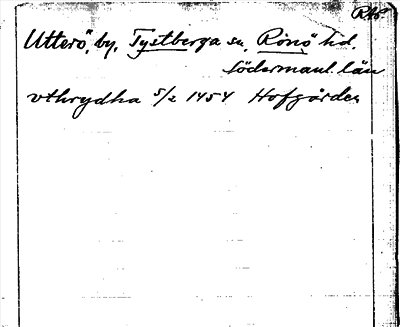 Utterö, by, Tystberga sn, Rönö hd.
Södermanl. län
vthrydha 5/2 1454 Hofgården